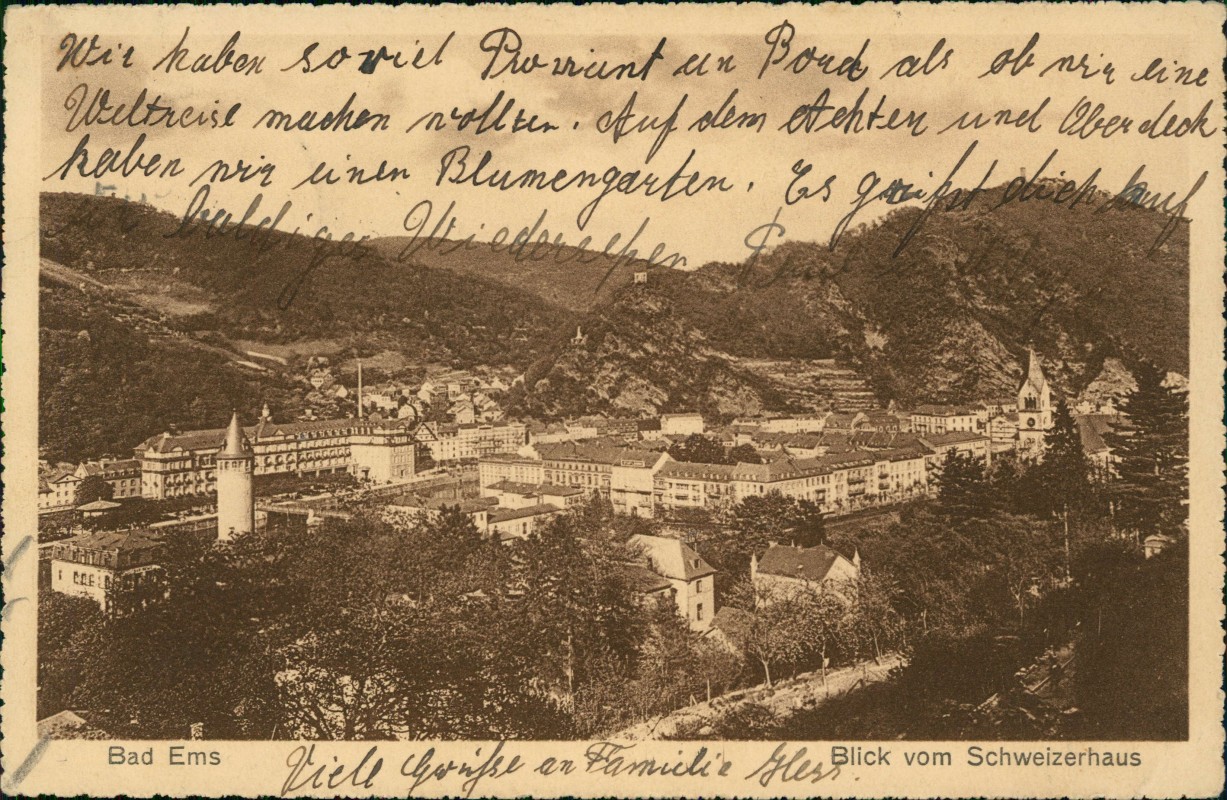 Wir haben soviel Proviant an Bord als ob wir eine
Weltreise machen wollten. Auf dem Achter und Oberdeck
haben wir einen Blumengarten. Es grüßt dich auf
ein baldiges Wiedersehen
Bad Ems
Viele Grüße an Familie
Blick vom Schweizerhaus